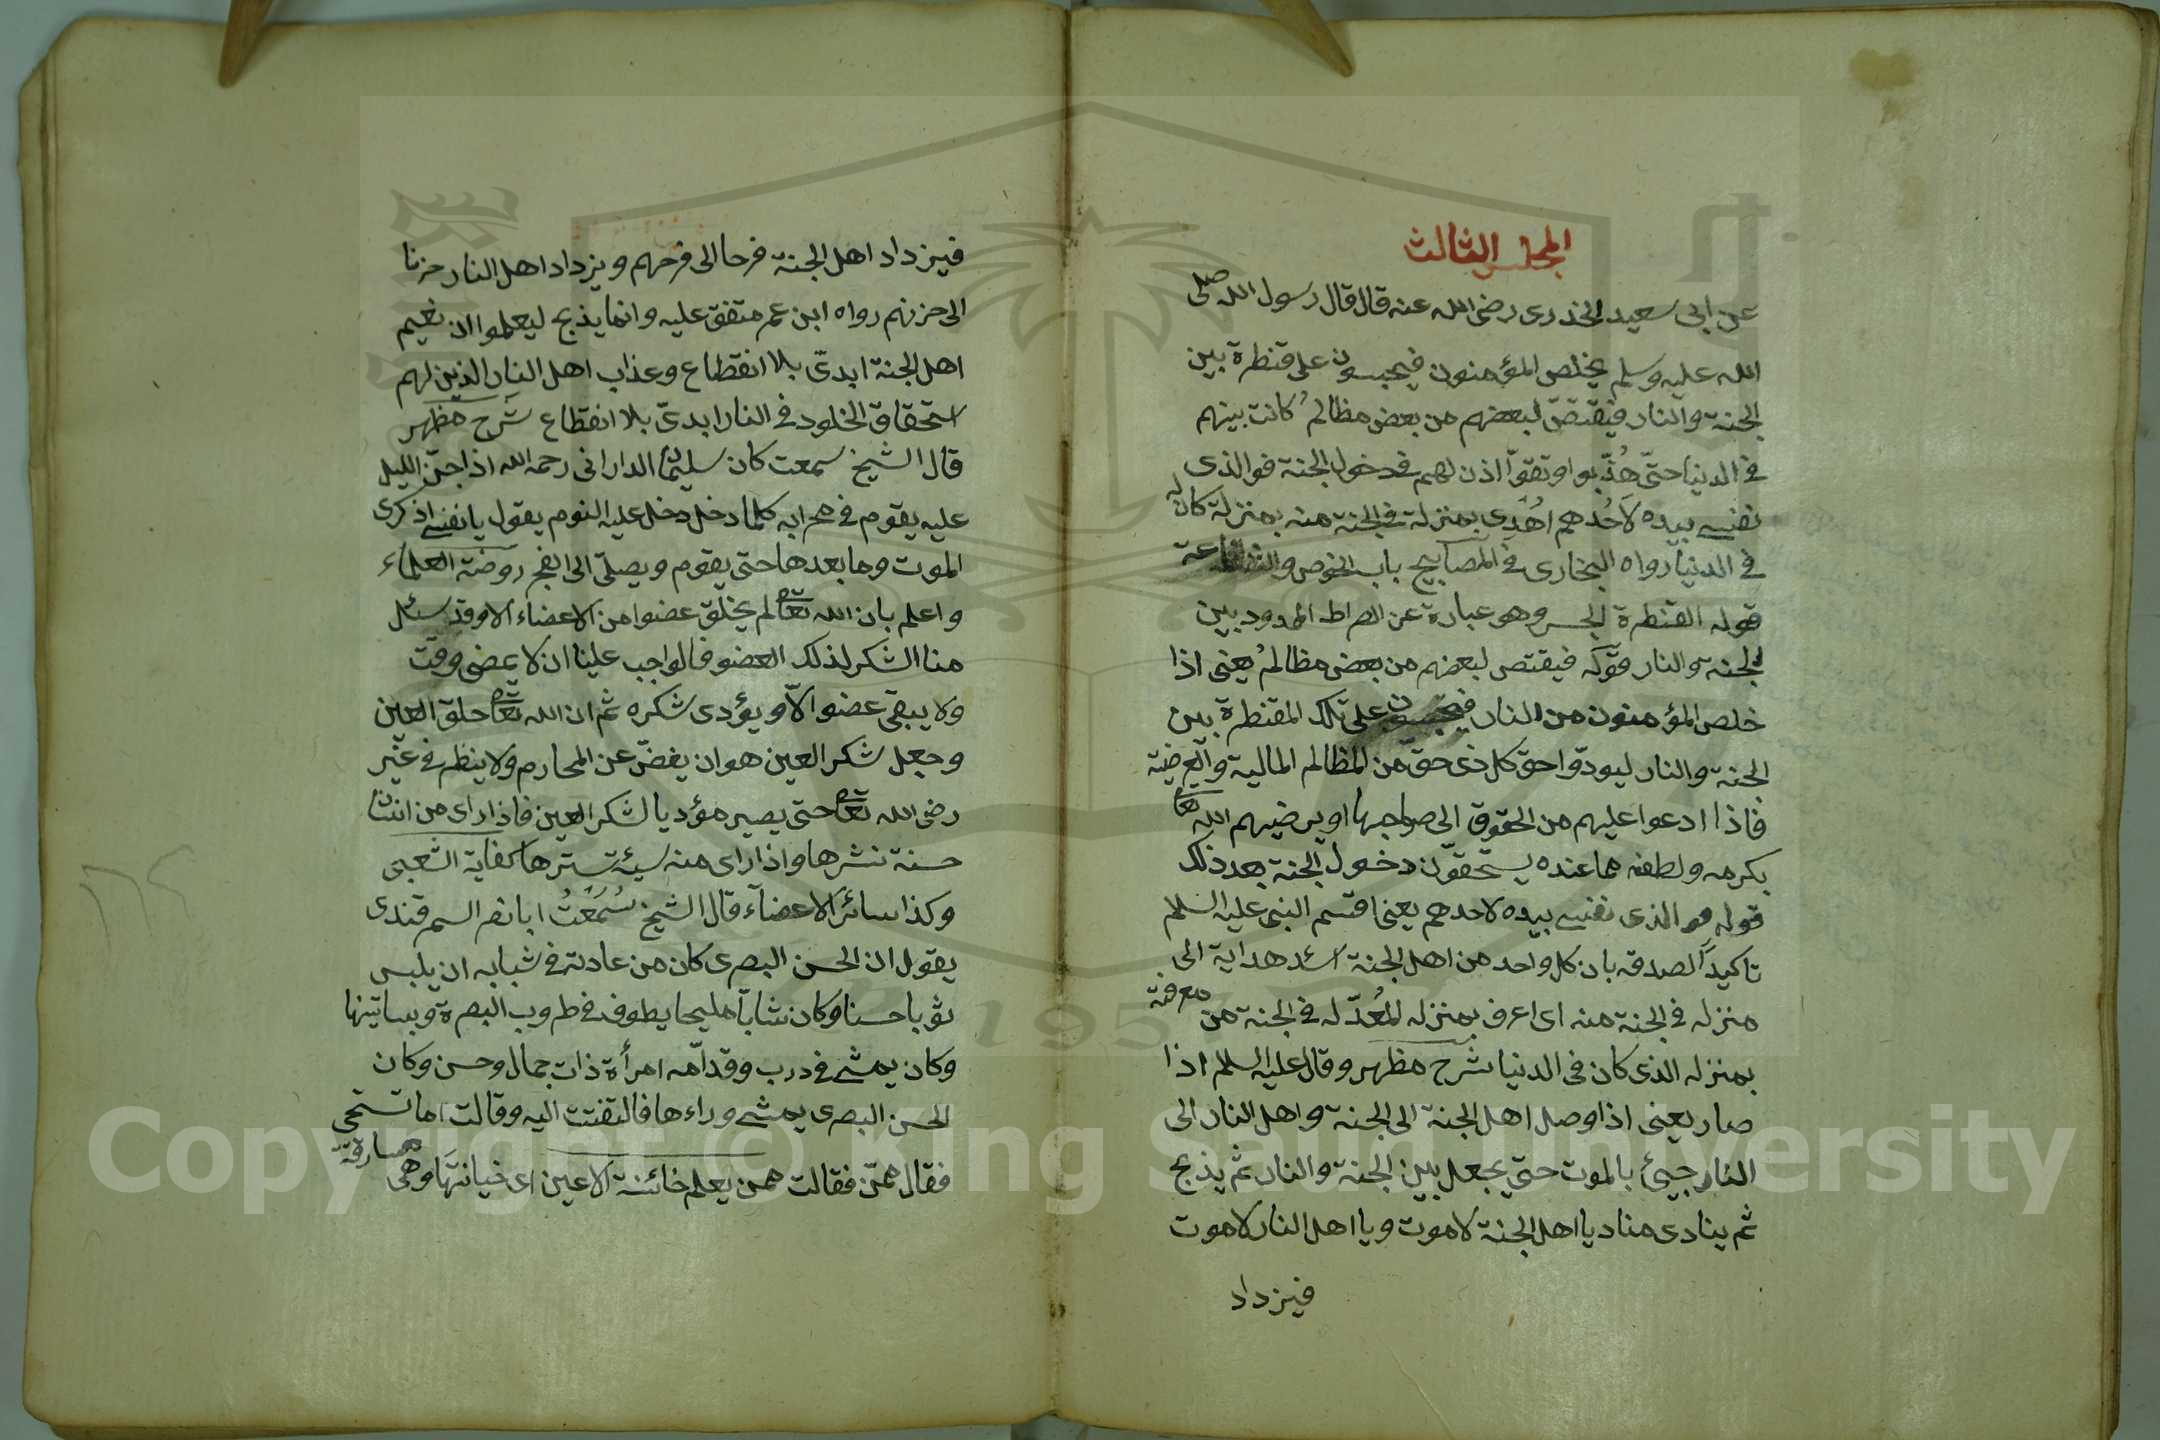 المجلس الثالث
عن ابى سعيد الخدرى رضى الله عنه قال قال رسول الله صلى
الله عليه وسلم يخلص المؤمنون فيحبسون على قنطرة بين
الجنة والنار فيقتصّ لبعضهم من بعض مظالم كانت بينهم
فى الدنيا حتّى هُذّبوا وتقوّا اذن لهم فى دخول الجنة فوالذى
نفسى بيده لاَحُدهم اهُدى بمنزلة فى الجنة منه بمنزلة كان له
فى الدنيا رواه البخارى فى المصابيح باب الحوض والشفاعة
قوله القنطرة الجسر وهو عبارة عن الصراط الممدود بين
الجنة والنار قوله فيقتص لبعضهم من بعض مظالم يعنى اذا
خلص المؤمنون من النار فيحبسون على تلك المقنطرة بين
الجنة والنار ليودّوا حق كل ذى حقّ من المظالم المالية والعرضية
فاذا ادعوا عليهم من الحقوق الى صواحبها او يرضيهم الله تعا
بكرمه ولطفه مما عنده يستحقّون دخول الجنة بعد ذلك
قوله فو الذى نفسى بيده لاحدهم يعنى اقتسم النبى عليه السلم
تاكيداً لصدقه بان كل واحد من اهل الجنة اشد هداية الى
منزله فى الجنة منه اى اعرف بمنزله المُعدّ له فى الجنة من معرفته
بمنزله الذى كان فى الدنيا شرح مظهر وقال عليه السلم اذا
صار يعنى اذا وصل اهل الجنة الى الجنة واهل النار الى
النار جيئ بالموت حتى يجعل بين الجنة والنار ثم يذبح
ثم ينادى مناد يا اهل الجنة لا موت ويا اهل النار لا موت
فيزداد
فيزداد اهل الجنة فرحا الى فرحهم ويزداد اهل النار حزنا
الى حزنهم رواه ابن عمر متفق عليه وانما يذبح ليعلموا ان نعيم
اهل الجنة ابدىّ بلا انقطاع وعذاب اهل النار الذين لهم
استحقاق الخلود فى النار ابدىّ بلا انقطاع شرح مظهر
قال الشيخ سمعت كان سليمان الدارانى رحمه الله اذا جنّ الليل
عليه يقوم فى محرابه كلما دخل دخل عليه النوم يقول يا نفسى اذكرى
الموت وما بعدها حتى يقوم ويصلّى الى الفجر روضة العلماء
واعلم بان الله تعا لم يخلق عضوا من الاعضاء الا وقد سئل
منا الشكر لذلك العضو فالواجب علينا ان لا يمضى وقت
ولا يبقى عضو الاّ ويؤدى شكره ثم ان الله تعا خلق العين
وجعل شكر العين هو ان يغضّ عن المحارم ولا ينظر فى غير
رضى الله تعا حتى يصير مؤديا لشكر العين فاذا راى من انسان
حسنة نشرها واذا راى منه سيئة سترها كفاية الشعبى
وكذا سائر الاعضاء قال الشيخ سُمَعَتُ ابا نصر السمرقندى
يقول ان الحسن البصرى كان من عادته فى شبابه ان يلبس
ثوبا حسنا وكان شابّا مليحا يطوف فى طروب البصرة وبساتينها
وكان يمشى فى درب وقدامه امرأة ذات جمال وحسن وكان
الحسن البصرى يمشى وراءها فالتفتت اليه وقالت اما تستحى
فقال ممّن فقالت ممن يعلم خائنة الاعين اى خيانتها وهى مسارقة
Copyright © King Saud University
1957